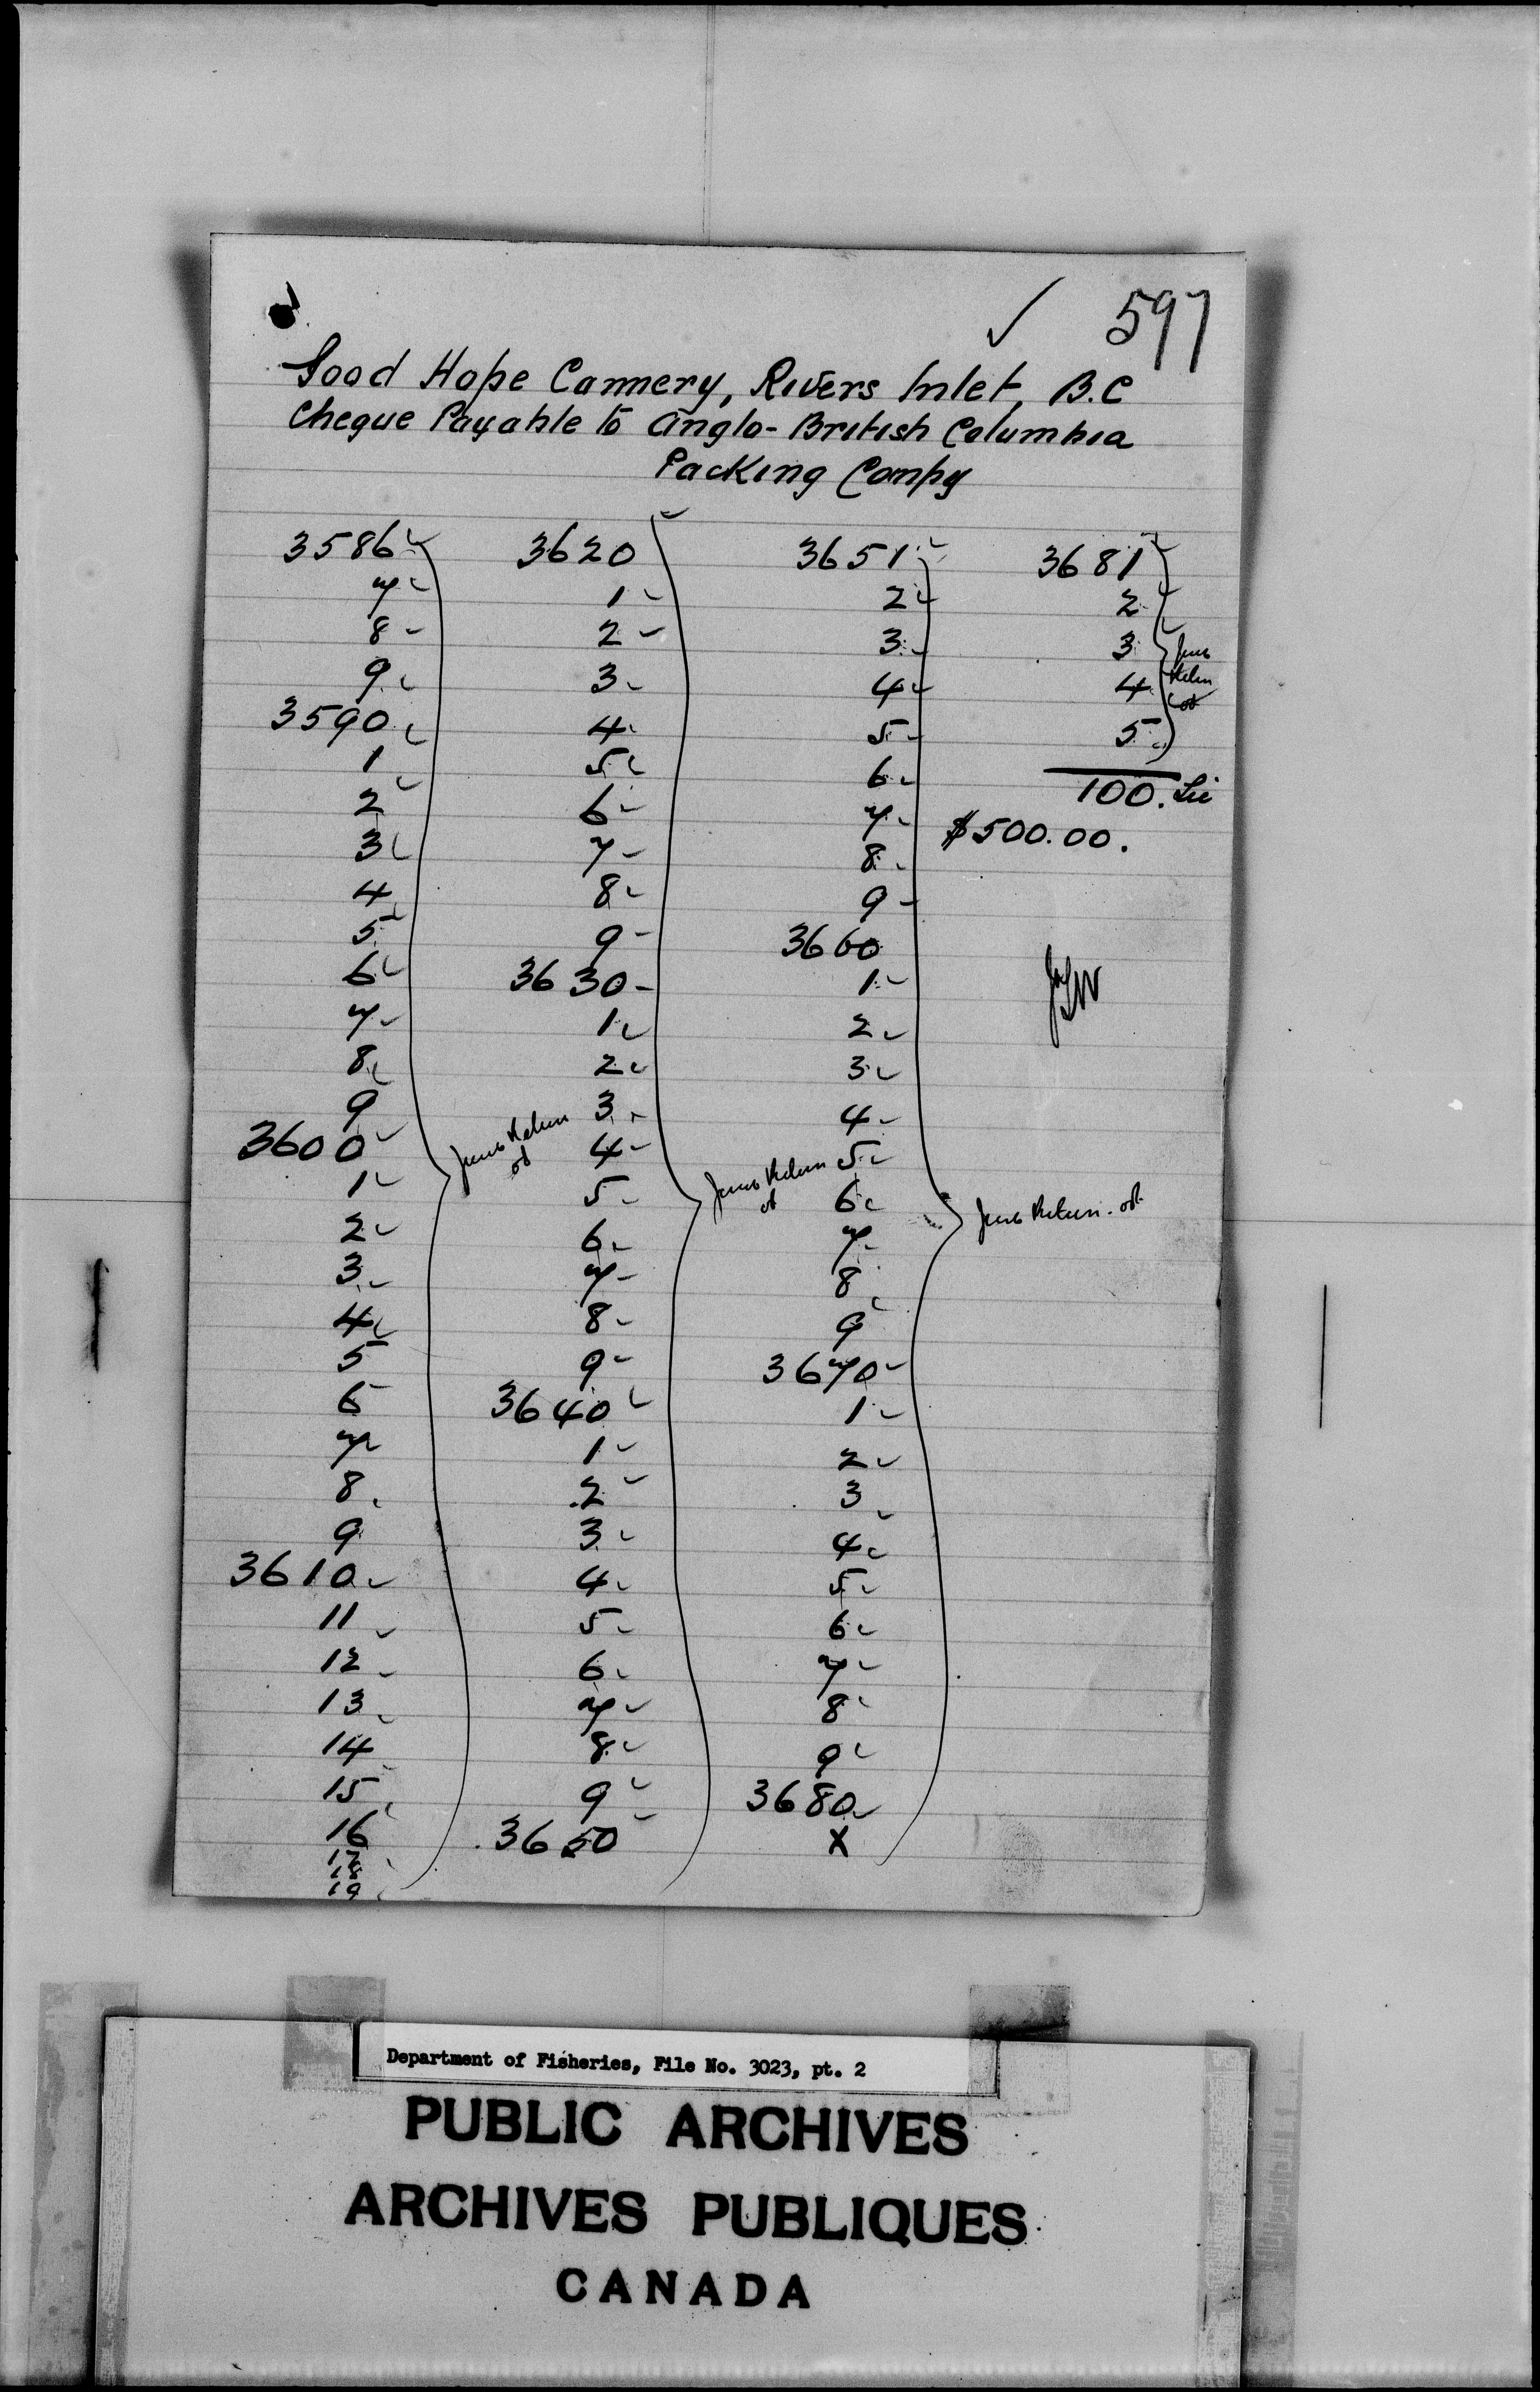 ✓ 597
Good Hope Cannery, Rivers Inlet, B.C
Cheque Payable to Anglo-British Columbia
Packing Compy
3586
7
8
9
3590
1
2
3
4
5
6
7
8
9
3600
1
2
3
4
5
6
7
8
9
3610
11
12
13
14
15
16
17
18
19
3620
1
2
3
4
5
6
7
8
9
3630
1
2
3
4
5
6
7
8
9
3640
1
2
3
4
5
6
7
8
9
3650
3651
2
3
4
5
6
7
8
9
3660
1
2
3
4
5
6
7
8
9
3670
1
2
3
4
5
6
7
8
9
3680
X
3681
2
3
4
5
100. Lic
$500.00.
Department of Fisheries, File No. 3023, pt. 2
PUBLIC ARCHIVES
ARCHIVES PUBLIQUES
CANADA